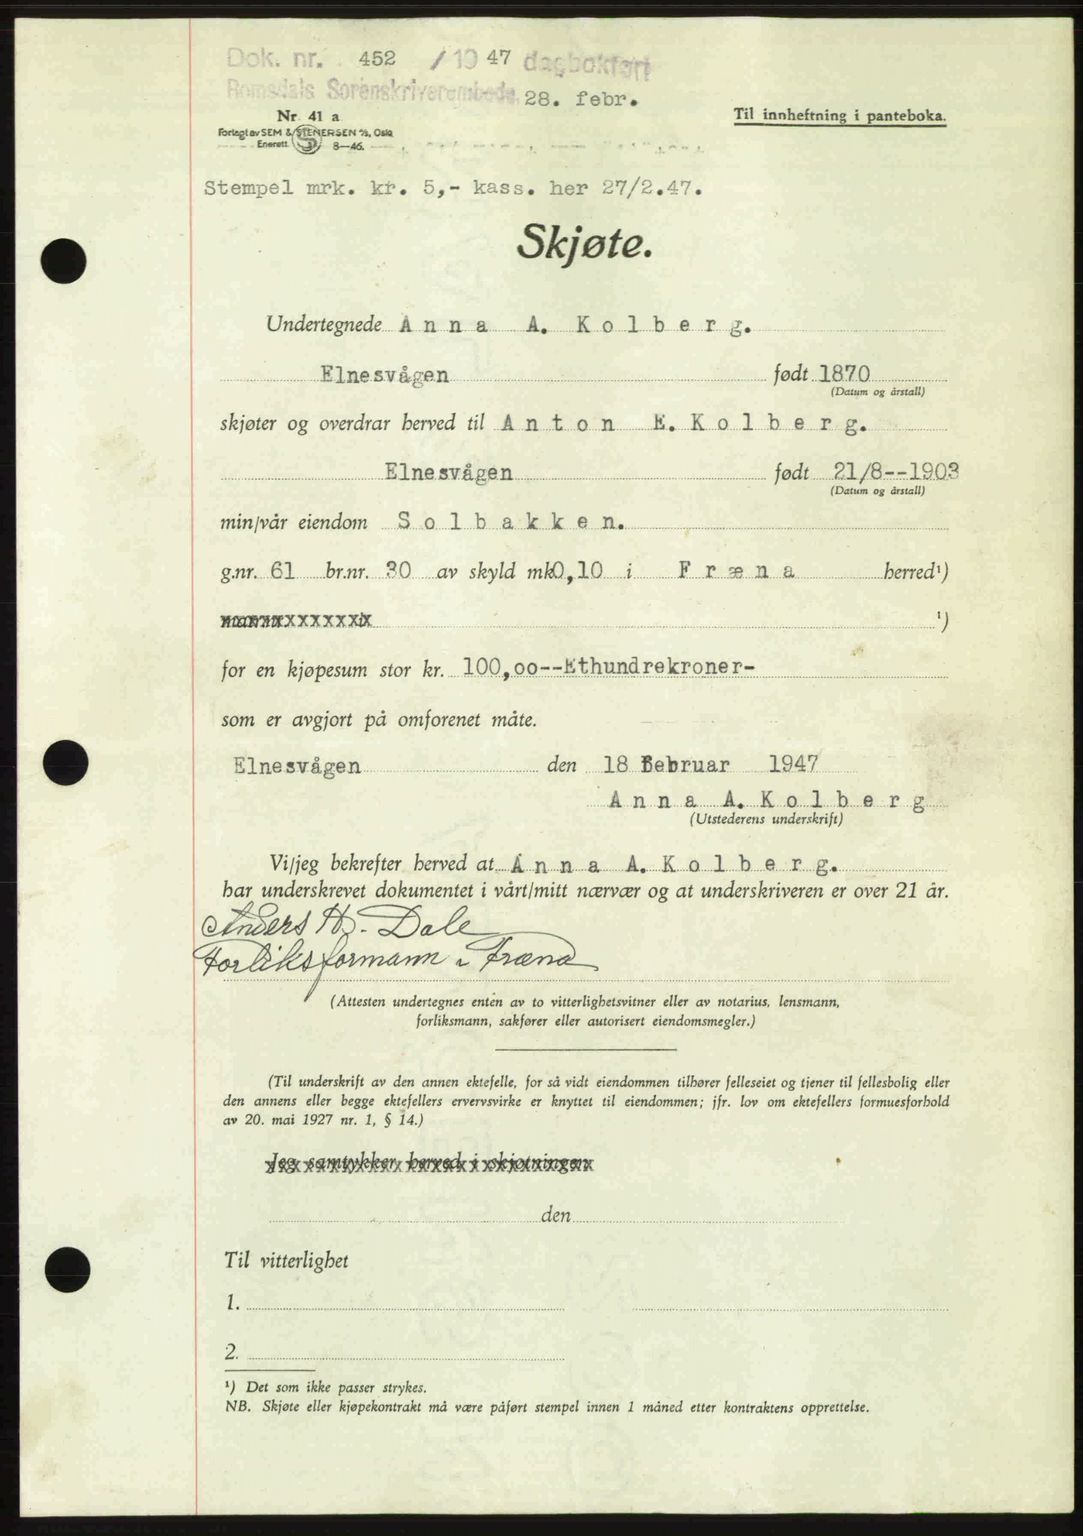 Dok. nr. 452 /1947 dagbokført
Romsdals Sorenskriverembede 28. febr.
Nr 41 a
Til innheftning i panteboka.
Forlagt av SEM & STENERSEN A/S, Oslo
Enerett. 8—46.
Stempel mrk. kr. 5,- kass. her 27/2.47.
Skjøte.
Undertegnede Anna A. Kolberg.
Elnesvågen født 1870
(Datum og årstall)
skjøter og overdrar herved til Anton E. Kolberg.
Elnesvågen født 21/8--1903
(Datum og årstall)
min/vår eiendom Solbakken.
g.nr. 61 br.nr. 30 av skyld mk 0,10 i Fræna herred¹)
¹)
for en kjøpesum stor kr. 100,oo--Ethundrekroner-
som er avgjort på omforenet måte.
Elnesvågen den 18 Februar 1947
Anna A. Kolberg
(Utstederens underskrift)
Vi/jeg bekrefter herved at Anna A. Kolberg.
har underskrevet dokumentet i vårt/mitt nærvær og at underskriveren er over 21 år.
Anders H. Dale
Forliksformann i Fræna
(Attesten undertegnes enten av to vitterlighetsvitner eller av notarius, lensmann,
forliksmann, sakfører eller autorisert eiendomsmegler.)
(Til underskrift av den annen ektefelle, for så vidt eiendommen tilhører felleseiet og tjener til fellesbolig eller
den annens eller begge ektefellers ervervsvirke er knyttet til eiendommen; jfr. lov om ektefellers formuesforhold
av 20. mai 1927 nr. 1, § 14.)
Jeg samtykker herved i skjøtningen
den
Til vitterlighet
1.
2.
¹) Det som ikke passer strykes.
NB. Skjøte eller kjøpekontrakt må være påført stempel innen 1 måned etter kontraktens opprettelse.